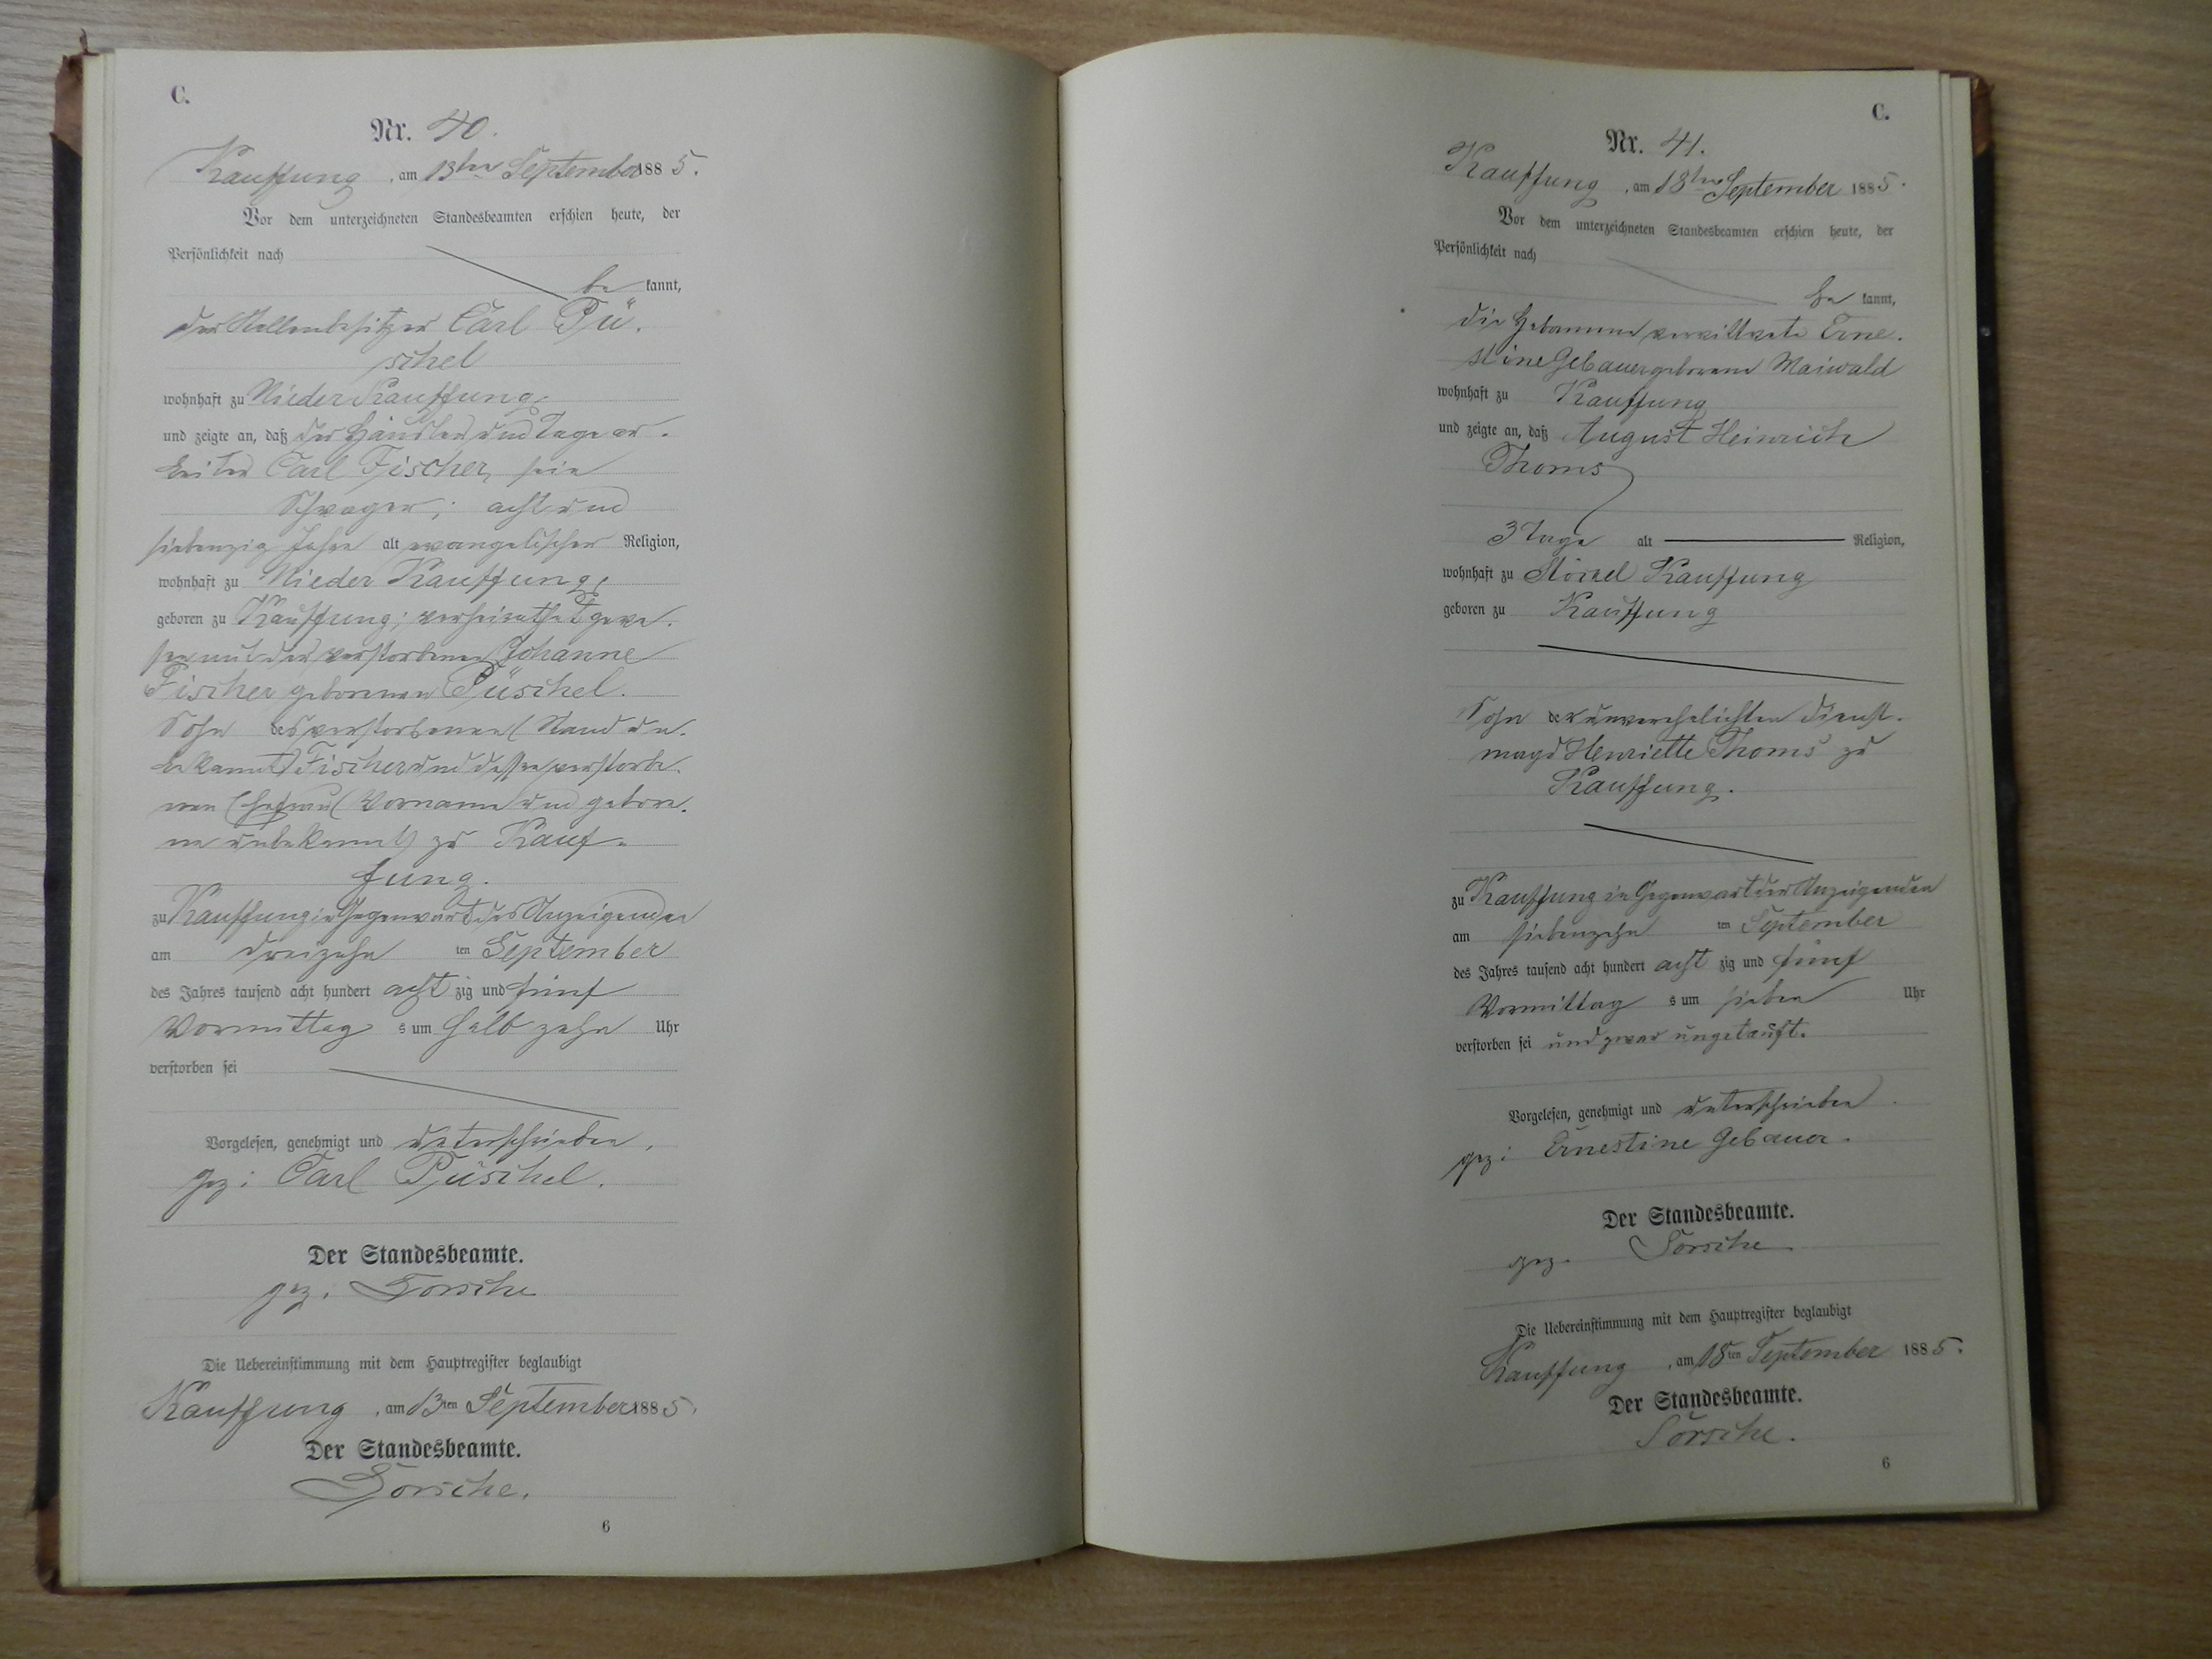 C.
Nr. 40.
Kauffung, am 13ten September 1885.
Vor dem unterzeichneten Standesbeamten erschien heute, der
Persönlichkeit nach
be kannt,
der Stellenbesitzer Carl Pü-
schel
wohnhaft zu Nieder Kauffung,
und zeigte an, daß der Händler und Tagear-
beiter Carl Fischer, sein
Schwager; acht und
siebenzig Jahre alt evangelischer Religion,
wohnhaft zu Nieder Kauffung,
geboren zu Kauffung; verheirathet gewe-
sen mit der verstorbenen Johanne
Fischer geborenen Püschel.
Sohn des verstorbenen (Stand un-
bekannt) Fischer und dessen verstorbe-
nen Ehefrau (Vorname und gebore-
ne unbekannt) zu Kauf-
fung.
zu Kauffung in Gegenwart des Anzeigenden
am dreizehn ten September
des Jahres tausend acht hundert acht zig und fünf
Vormittag s um halb zehn Uhr
verstorben sei
Vorgelesen, genehmigt und unterschrieben.
gez: Carl Püschel.
Der Standesbeamte.
gez:
Die Uebereinstimmung mit dem Hauptregister beglaubigt
Kauffung, am 13ten September 1885.
Der Standesbeamte.
6
C.
Nr. 41.
Kauffung, am 18ten September 1885.
Vor dem unterzeichneten Standesbeamten erschien heute, der
Persönlichkeit nach
be kannt,
die Hebamme verwittwete Erne-
stine Gebauer geborene Maiwald
wohnhaft zu Kauffung
und zeigte an, daß August Heinrich
Thoms
3 Tage alt Religion,
wohnhaft zu Stöckel Kauffung
geboren zu Kauffung
Sohn der unverehelichten Dienst-
magd Henriette Thoms zu
Kauffung.
zu Kauffung in Gegenwart der Anzeigenden
am siebenzehn ten September
des Jahres tausend acht hundert acht zig und fünf
Vormittag s um sieben Uhr
verstorben sei und zwar ungetauft.
Vorgelesen, genehmigt und unterschrieben
gez: Ernestine Gebauer.
Der Standesbeamte.
gez.
Die Uebereinstimmung mit dem Hauptregister beglaubigt
Kauffung, am 18ten September 1885.
Der Standesbeamte.
6